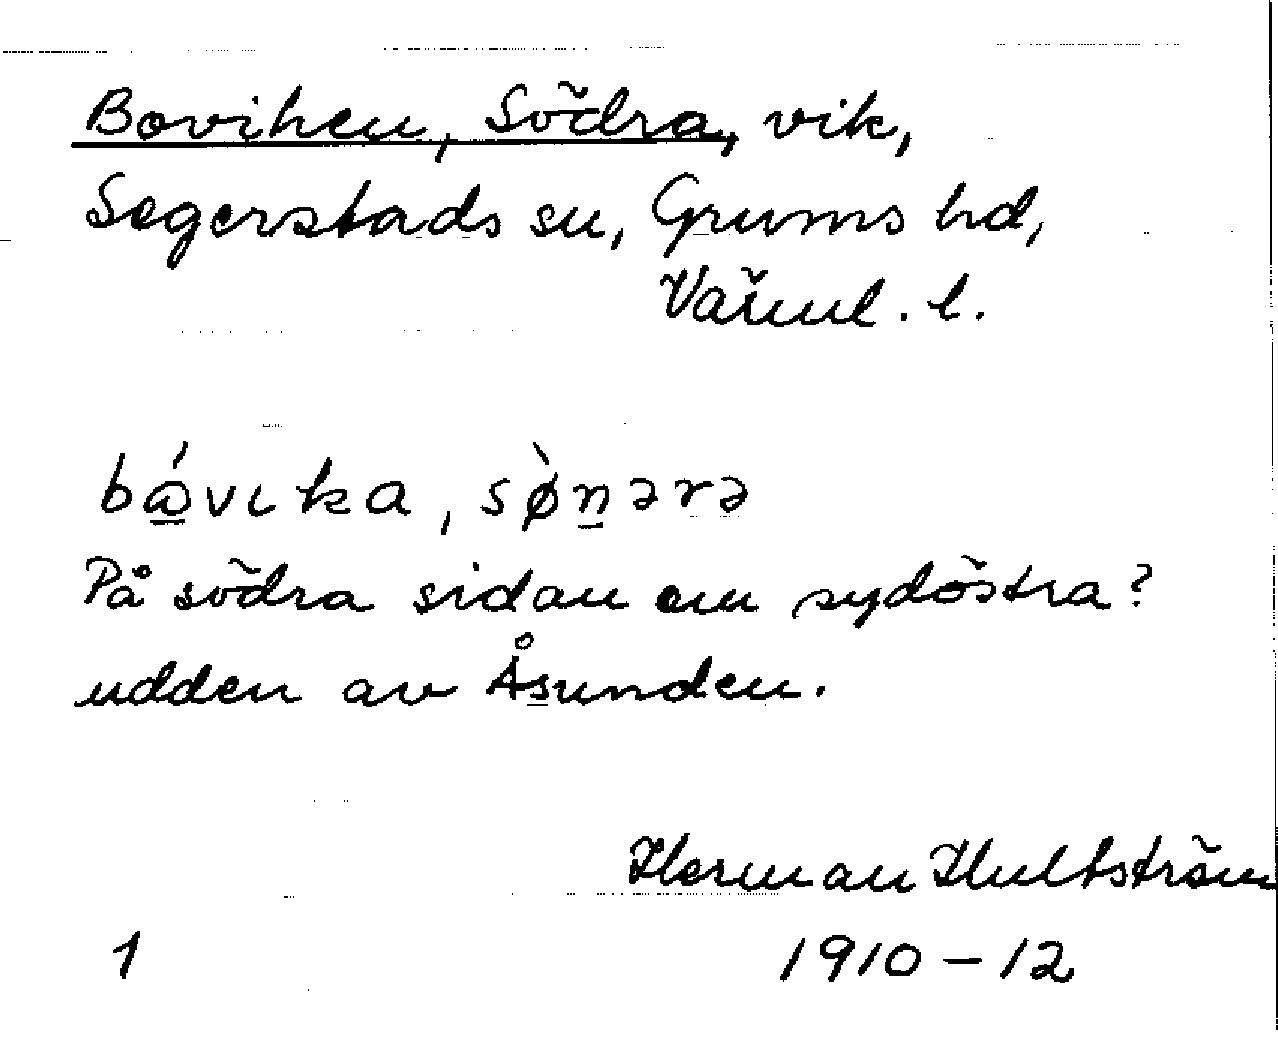 Boviken, Södra, vik,
Segerstads sn, Grums hd,
Värml. l.
bǻ̱vıka, sø̀n̲ərə
På södra sidan om sydöstra?
udden av Åsunden.
Herman Hultström
1 1910-12